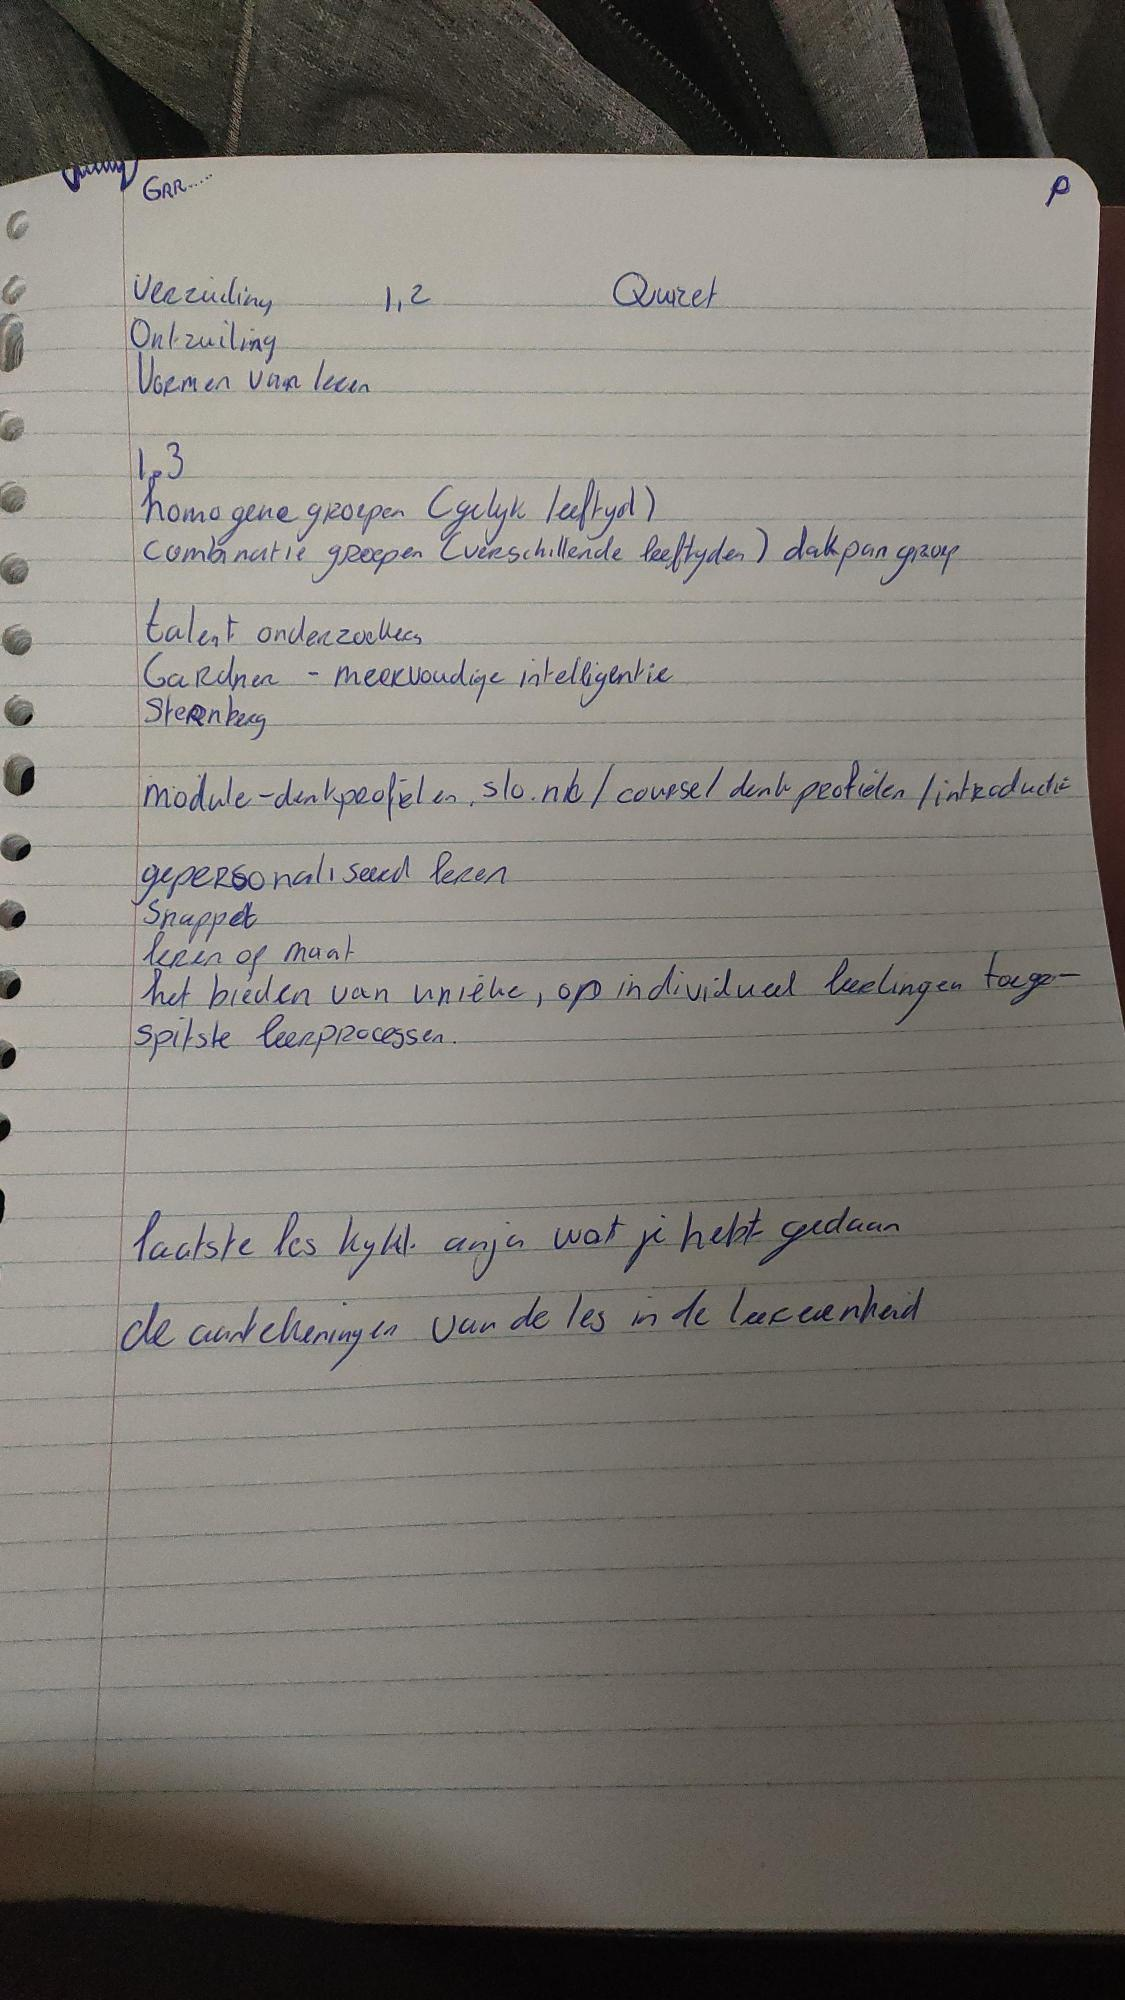 GRR.....
P
Verzuiling 1,2 Quizet
Ontzuiling
Vormen van leren
1.3
homogene groepen (gelyk leeftyd)
combinatie groepen (verschillende leeftyden) dakpan groep
talent onderzoekers
Gardner - meervoudige intelligentie
Sternberg
module-denkprofielen.slo.nl / course / denkprofielen / introductie
gepersonaliseerd leren
Snappet
leren op maat
het bieden van unieke, op individueel leerlingen toege-
spitste leerprocessen.
laatste les kykt anja wat je hebt gedaan
de aantekeningen van de les in de leereenheid